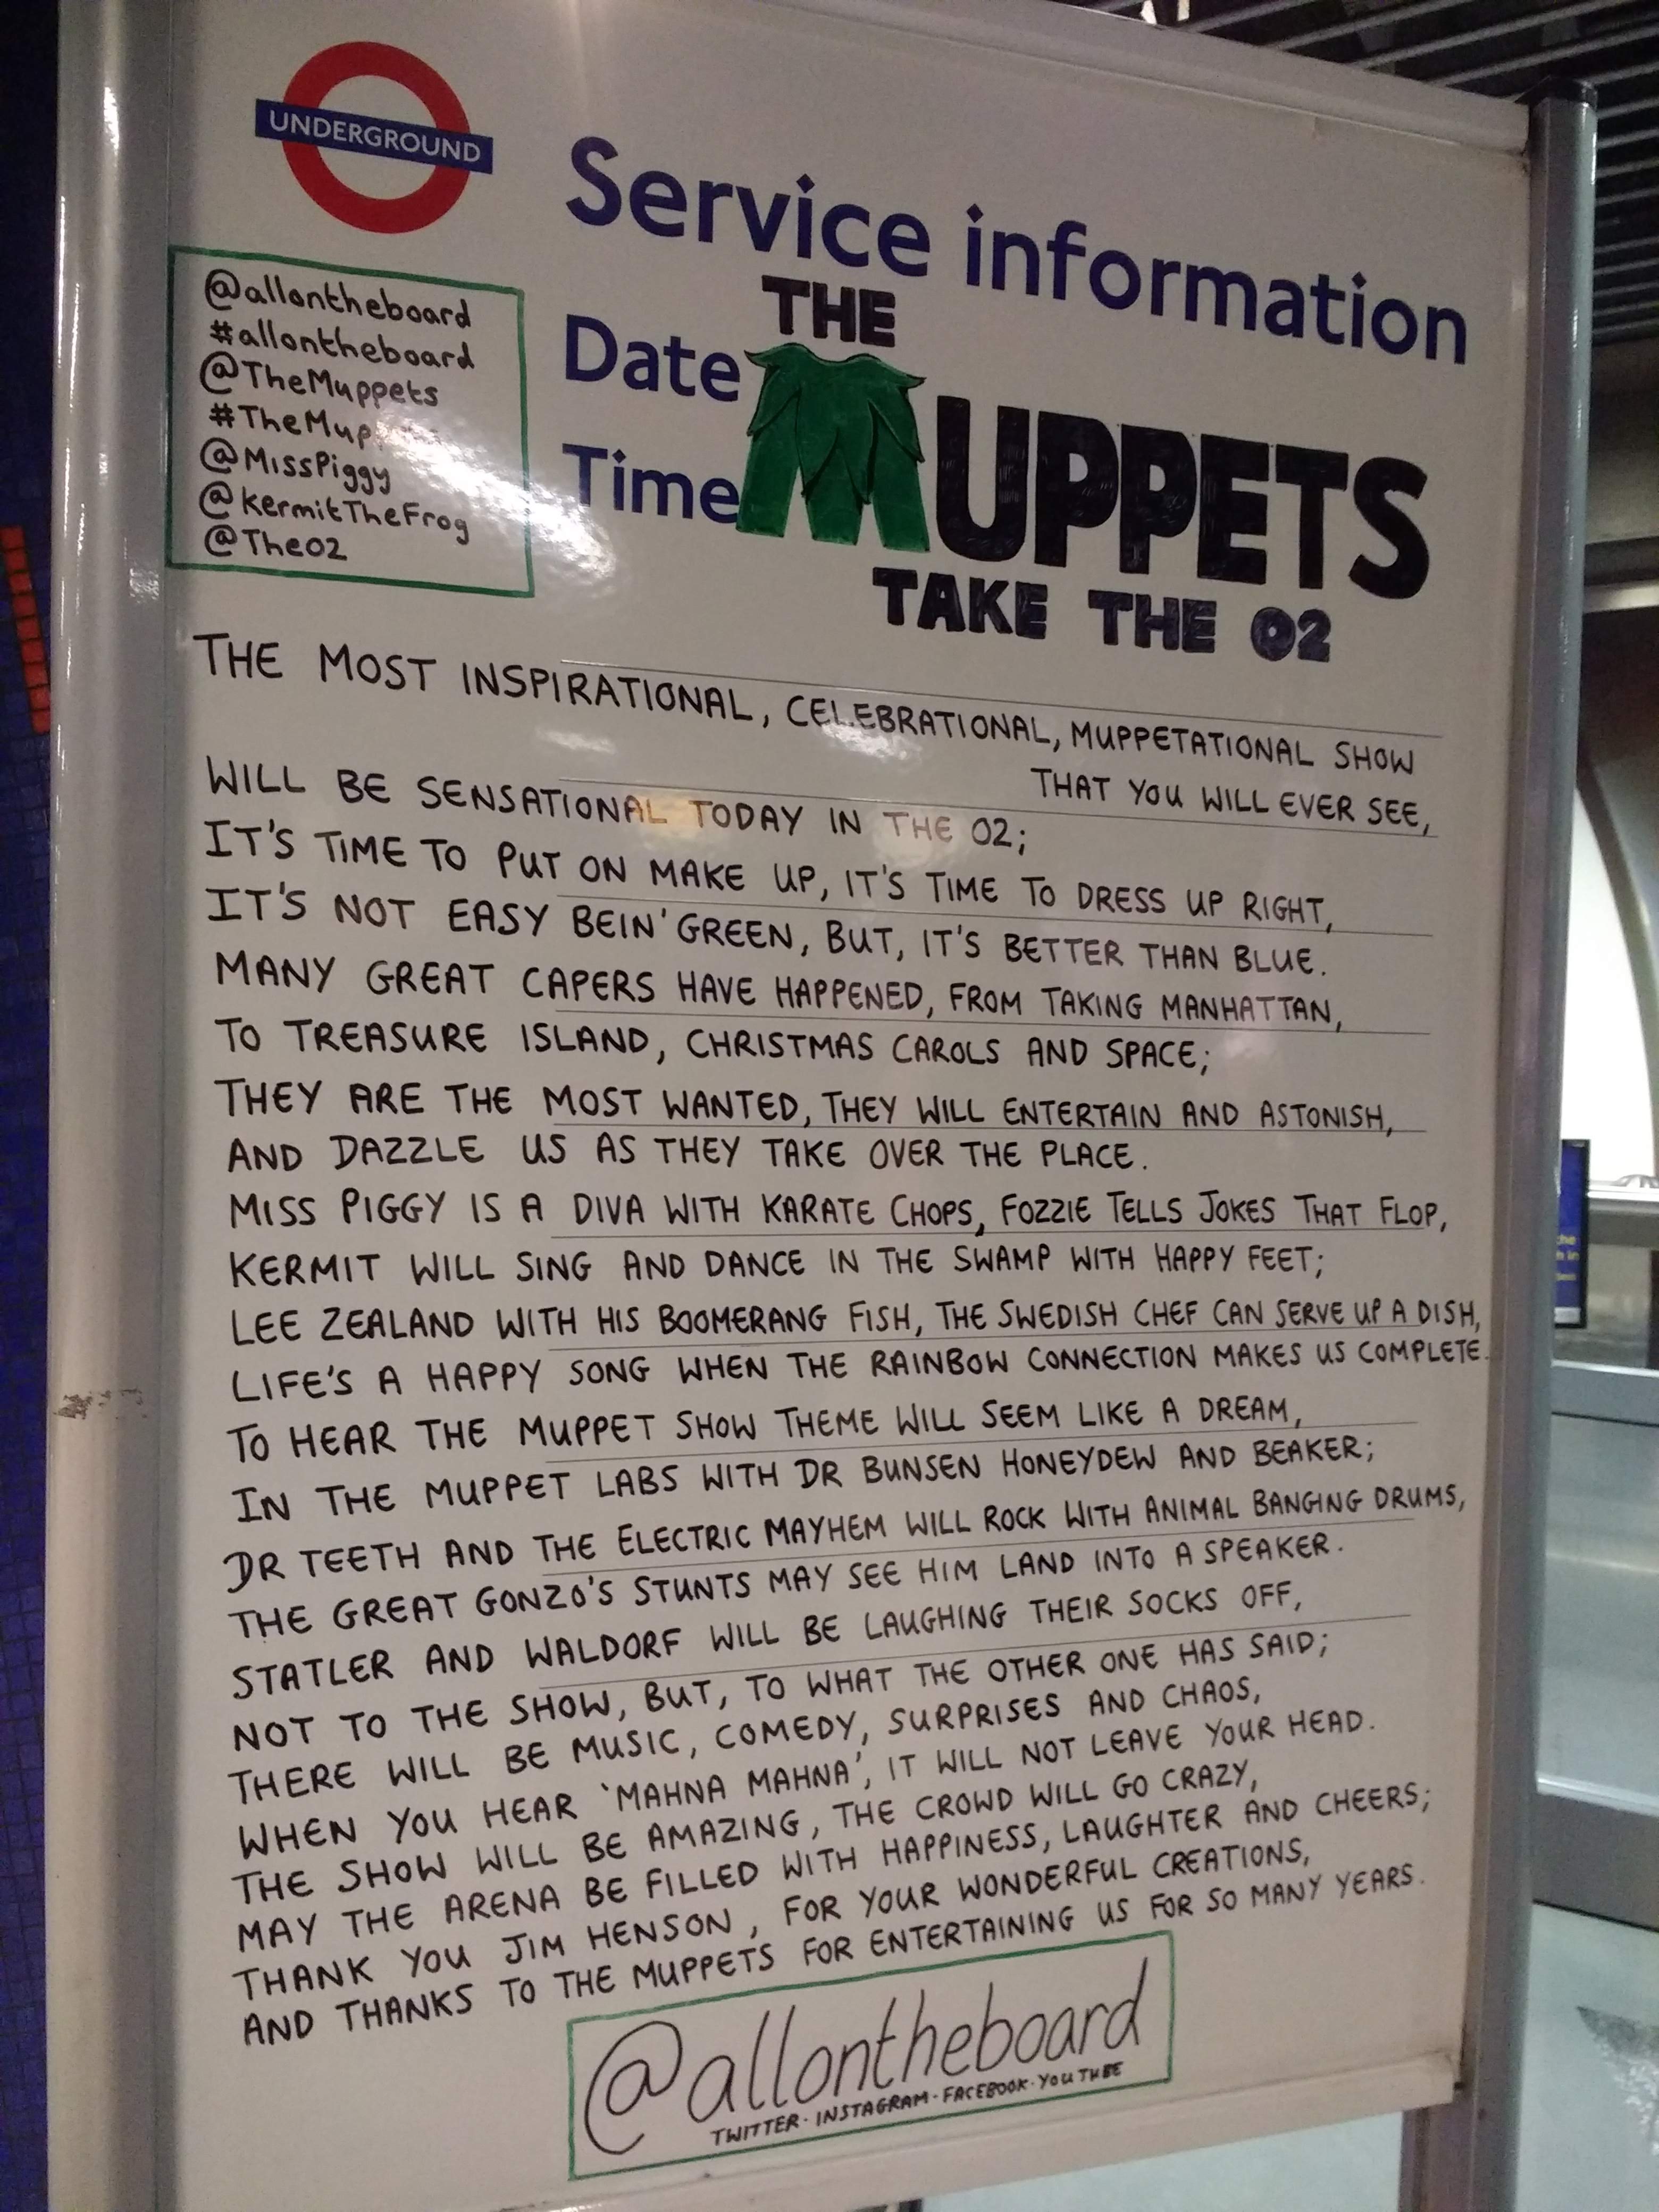 UNDERGROUND
Service information
Date
Time
THE
MUPPETS
TAKE THE O2
@allontheboard
#allontheboard
@TheMuppets
#TheMup
@MissPiggy
@KermitTheFrog
@TheO2
THE MOST INSPIRATIONAL, CELEBRATIONAL, MUPPETATIONAL SHOW
THAT YOU WILL EVER SEE,
WILL BE SENSATIONAL TODAY IN THE O2;
IT'S TIME TO PUT ON MAKE UP, IT'S TIME TO DRESS UP RIGHT,
IT'S NOT EASY BEIN' GREEN, BUT, IT'S BETTER THAN BLUE.
MANY GREAT CAPERS HAVE HAPPENED, FROM TAKING MANHATTAN,
TO TREASURE ISLAND, CHRISTMAS CAROLS AND SPACE;
THEY ARE THE MOST WANTED, THEY WILL ENTERTAIN AND ASTONISH,
AND DAZZLE US AS THEY TAKE OVER THE PLACE.
MISS PIGGY IS A DIVA WITH KARATE CHOPS, FOZZIE TELLS JOKES THAT FLOP,
KERMIT WILL SING AND DANCE IN THE SWAMP WITH HAPPY FEET;
LEE ZEALAND WITH HIS BOOMERANG FISH, THE SWEDISH CHEF CAN SERVE UP A DISH,
LIFE'S A HAPPY SONG WHEN THE RAINBOW CONNECTION MAKES US COMPLETE.
TO HEAR THE MUPPET SHOW THEME WILL SEEM LIKE A DREAM,
IN THE MUPPET LABS WITH DR BUNSEN HONEYDEW AND BEAKER;
DR TEETH AND THE ELECTRIC MAYHEM WILL ROCK WITH ANIMAL BANGING DRUMS,
THE GREAT GONZO'S STUNTS MAY SEE HIM LAND INTO A SPEAKER.
STATLER AND WALDORF WILL BE LAUGHING THEIR SOCKS OFF,
NOT TO THE SHOW, BUT, TO WHAT THE OTHER ONE HAS SAID;
THERE WILL BE MUSIC, COMEDY, SURPRISES AND CHAOS,
WHEN YOU HEAR 'MAHNA MAHNA', IT WILL NOT LEAVE YOUR HEAD.
THE SHOW WILL BE AMAZING, THE CROWD WILL GO CRAZY,
MAY THE ARENA BE FILLED WITH HAPPINESS, LAUGHTER AND CHEERS;
THANK YOU JIM HENSON, FOR YOUR WONDERFUL CREATIONS,
AND THANKS TO THE MUPPETS FOR ENTERTAINING US FOR SO MANY YEARS.
@allontheboard
TWITTER · INSTAGRAM · FACEBOOK · YOUTUBE